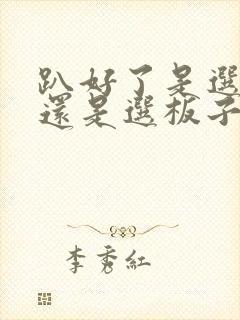 趴好了是選
還是選板子
李秀紅